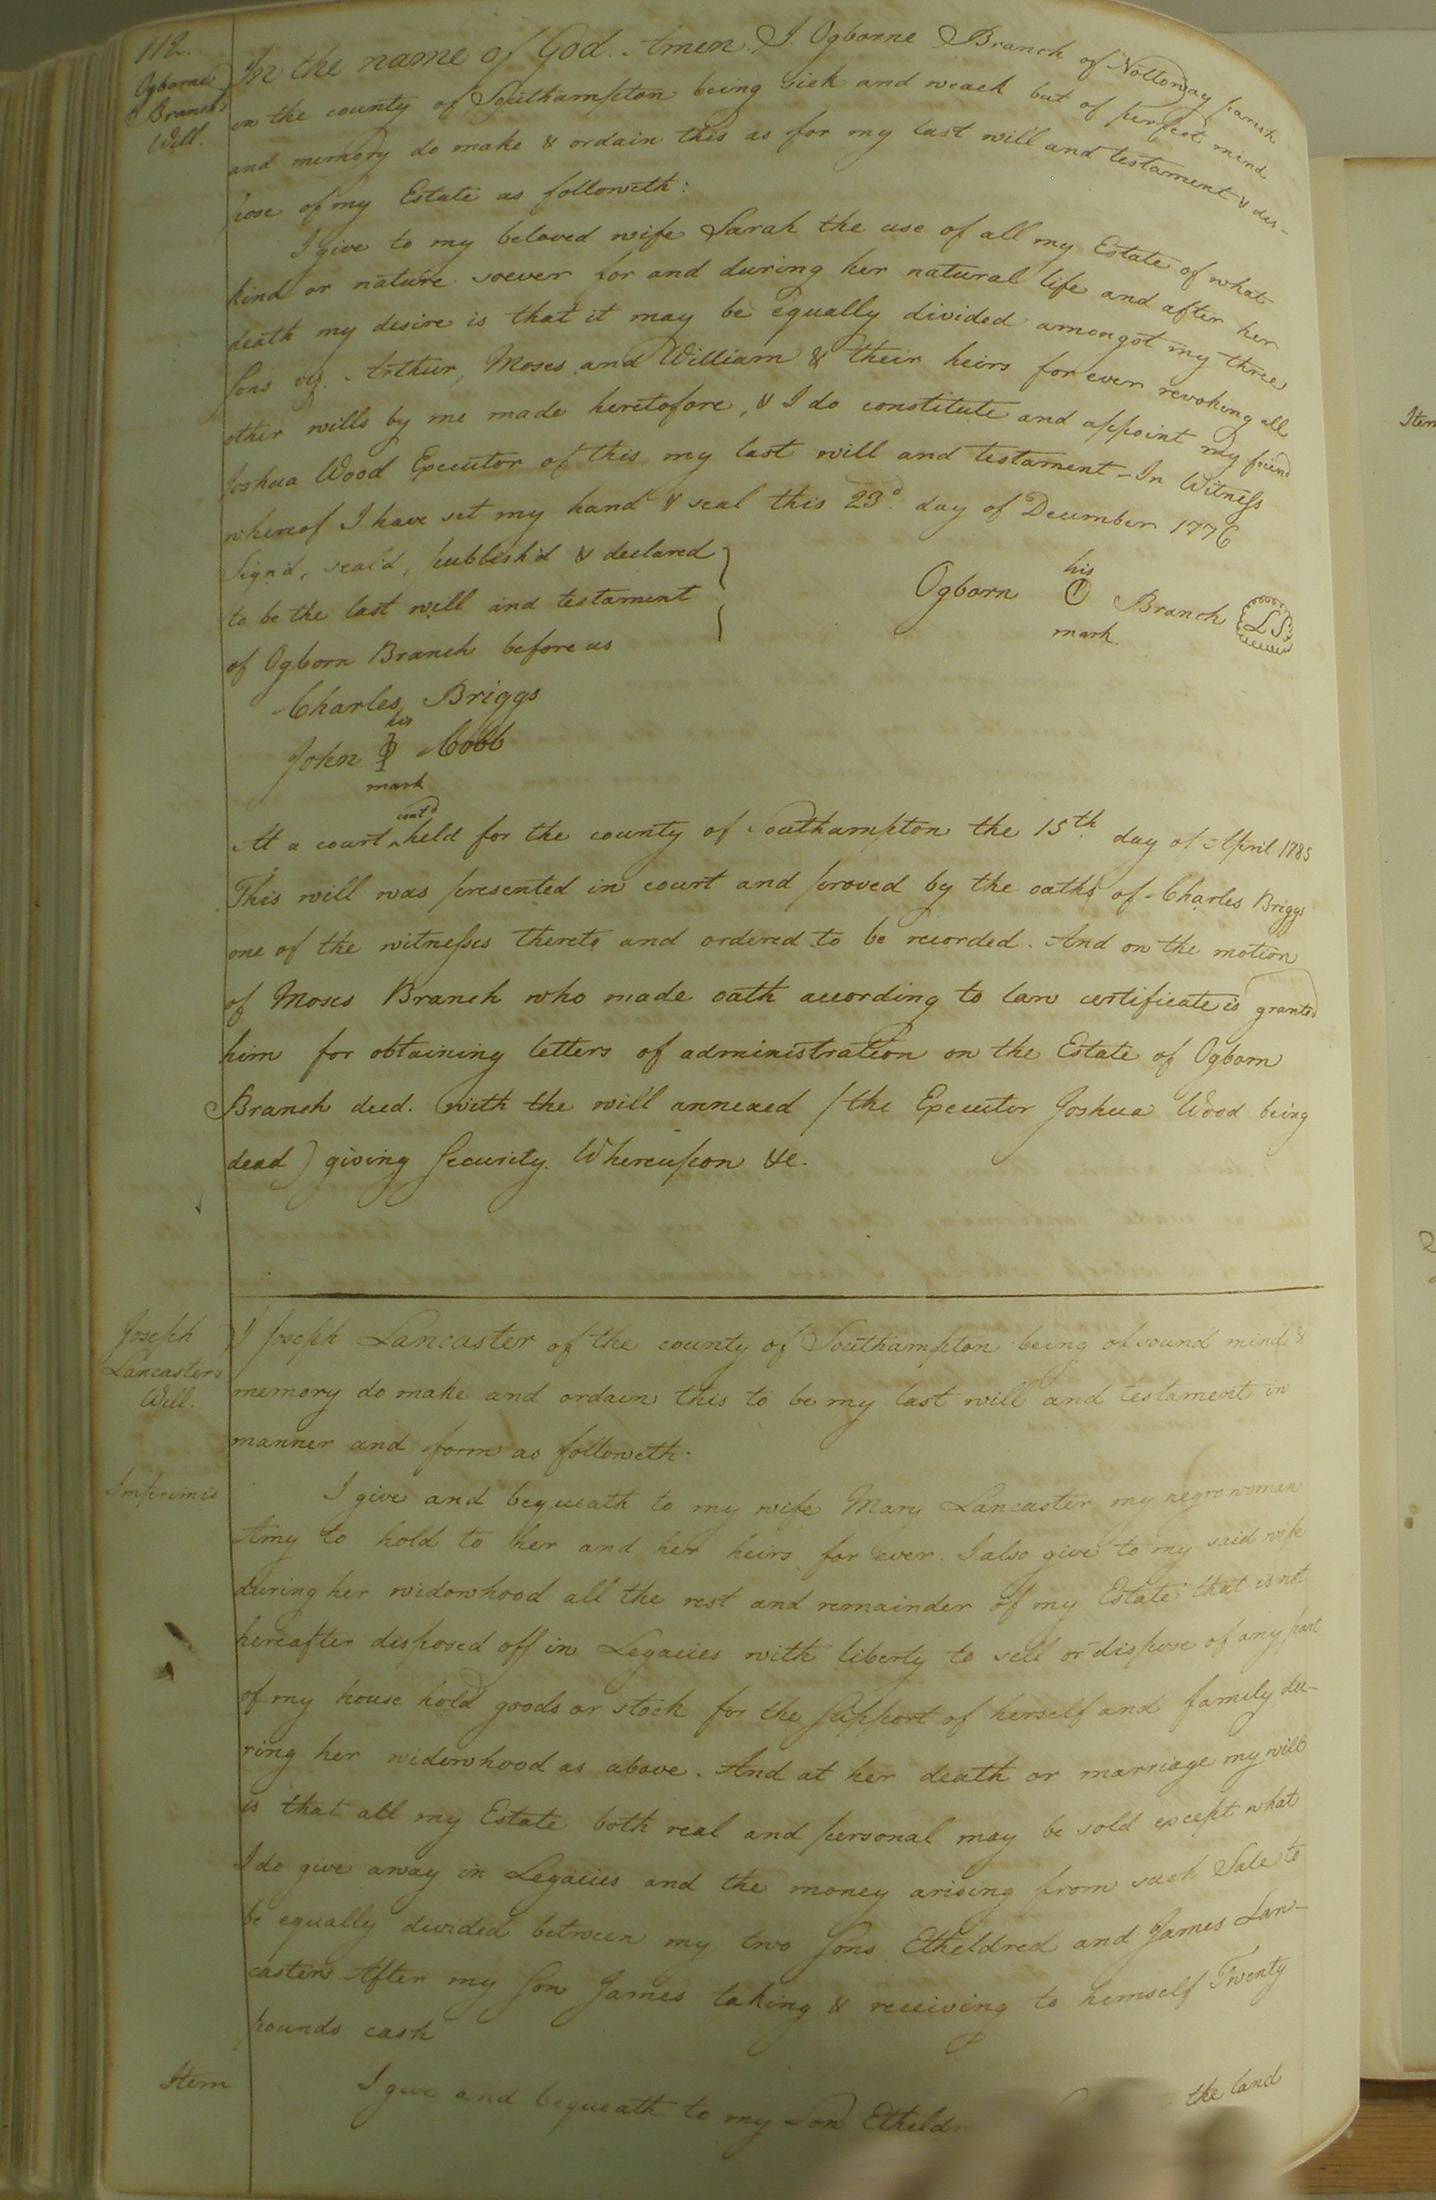 112.
Ogborne
Branch's
Will.
In the name of God Amen. I Ogborne Branch of Nottoway parish
in the county of Southampton being sick and weack but of perfect mind
and memory do make & ordain this as for my last will and testament & dis-
pose of my Estate as followeth:
I give to my beloved wife Sarah the use of all my Estate of what
kind or nature soever for and during her natural life and after her
death my desire is that it may be equally divided amongst my three
Sons viz. Arthur, Moses and William & their heirs for ever revoking all
other wills by me made heretofore, & I do constitute and appoint my friend
Joshua Wood Executor of this my last will and testament - In Witness
whereof I have set my hand & seal this 23d. day of December 1776
Sign'd, seal'd, publish'd & declared
to be the last will and testament
of Ogborn Branch before us
his
Ogborn Branch LS
mark.
Charles Briggs
his
John Cobb
mark
cont'd
At a court held for the county of Southampton the 15th. day of April 1785
This will was presented in court and proved by the oaths of Charles Briggs
one of the witnesses thereto and ordered to be recorded. And on the motion
of Moses Branch who made oath according to law certificate is granted
him for obtaining letters of administration on the Estate of Ogborn
Branch decd. with the will annexed (the Executor Joshua Wood being
dead) giving Security. Whereupon &c.
Joseph
Lancasters
Will.
I Joseph Lancaster of the county of Southampton being of sound mind &
memory do make and ordain this to be my last will and testament in
manner and form as followeth.
Imprimis
I give and bequeath to my wife Mary Lancaster my negro woman
Amy to hold to her and her heirs for ever. I also give to my said wife
during her widowhood all the rest and remainder of my Estate that is not
hereafter disposed off in Legacies with liberty to sell or dispose of any part
of my house hold goods or stock for the Support of herself and family du-
ring her widowhood as above. And at her death or marriage my will
is that all my Estate both real and personal may be sold except what
I do give away in Legacies and the money arising from such Sale to
be equally divided between my two Sons Etheldred and James Lan-
casters After my Son James taking & receiving to himself Twenty
pounds cash
Item
I give and bequeath to my Son Etheldr
the land
Item